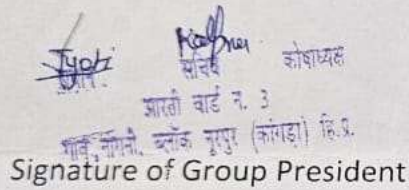 Jyoti
प्रधान सचिव कोषाध्यक्ष
आरती वार्ड न. 3
गांव नागनी, ब्लॉक नूरपुर (कांगड़ा) हि.प्र.
Signature of Group President